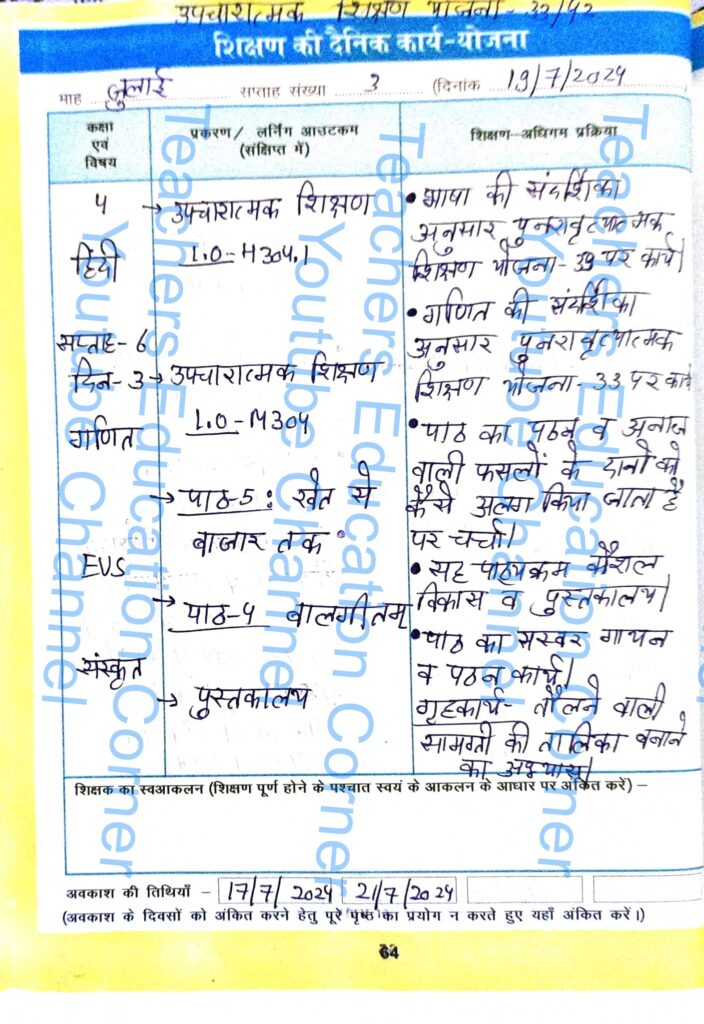 उपचारात्मक शिक्षण योजना - 33/42
शिक्षण की दैनिक कार्य-योजना
माह जुलाई सप्ताह संख्या 3 (दिनांक 19/7/2024
कक्षा एवं विषय
प्रकरण / लर्निंग आउटकम (संक्षिप्त में)
शिक्षण-अधिगम प्रक्रिया
5
हिंदी
सप्ताह- 6
दिन- 3
गणित
EVS
संस्कृत
→ उपचारात्मक शिक्षण
L.O-H304.1
→ उपचारात्मक शिक्षण
L.O-M304
→ पाठ-5: खेत से
बाजार तक
→ पाठ-4 बालगीतम्
→ पुस्तकालय
• भाषा की संदर्शिका
अनुसार पुनरावृत्यात्मक
शिक्षण योजना- 33 पर कार्य।
• गणित की संदर्शिका
अनुसार पुनरावृत्यात्मक
शिक्षण योजना- 33 पर कार्य
• पाठ का पठन व अनाज
वाली फसलों के दानों को
कैसे अलग किया जाता है
पर चर्चा।
• सह पाठ्यक्रम कौशल
विकास व पुस्तकालय।
• पाठ का सस्वर गायन
व पठन कार्य।
गृहकार्य- तौलने वाली
सामग्री की तालिका बनाने
का अभ्यास।
शिक्षक का स्वआकलन (शिक्षण पूर्ण होने के पश्चात स्वयं के आकलन के आधार पर अंकित करें) –
अवकाश की तिथियाँ – 17/7/2024 21/7/2024
(अवकाश के दिवसों को अंकित करने हेतु पूरे पृष्ठ का प्रयोग न करते हुए यहाँ अंकित करें।)
64
Teachers Education Corner
Youtube Channel
Teachers Education Corner
Youtube Channel
Teachers Education Corner
Youtube Channel